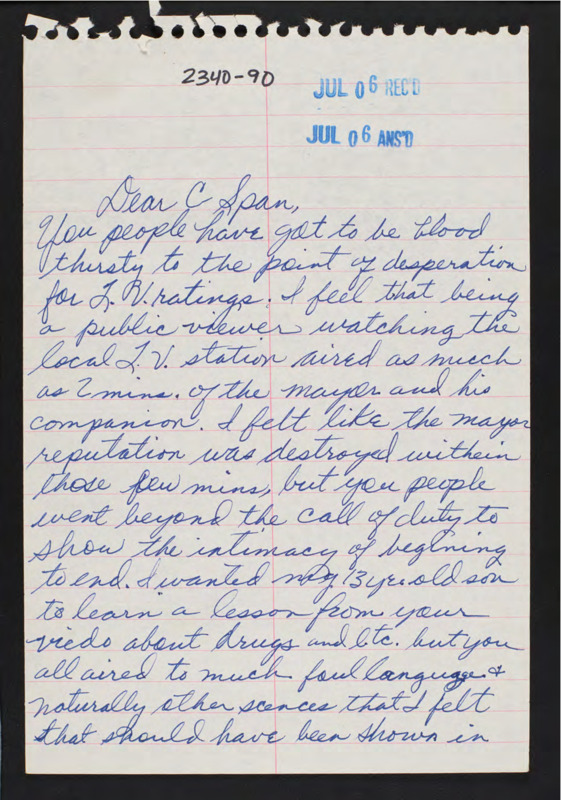 2340-90
JUL 06 REC'D
JUL 06 ANS'D
Dear C Span,
You people have got to be blood
thirsty to the point of desperation
for T.V. ratings. I feel that being
a public viewer watching the
local T.V. station aired as much
as 2 mins. of the mayor and his
companion. I felt like the mayor
reputation was destroyed withein
those few mins, but you people
went beyond the call of duty to
show the intimacy of begining
to end. I wanted my 13 yr. old son
to learn a lesson from your
viedo about drugs and Etc. but you
all aired to much foul language &
naturally other scences that I felt
that should have been shown in